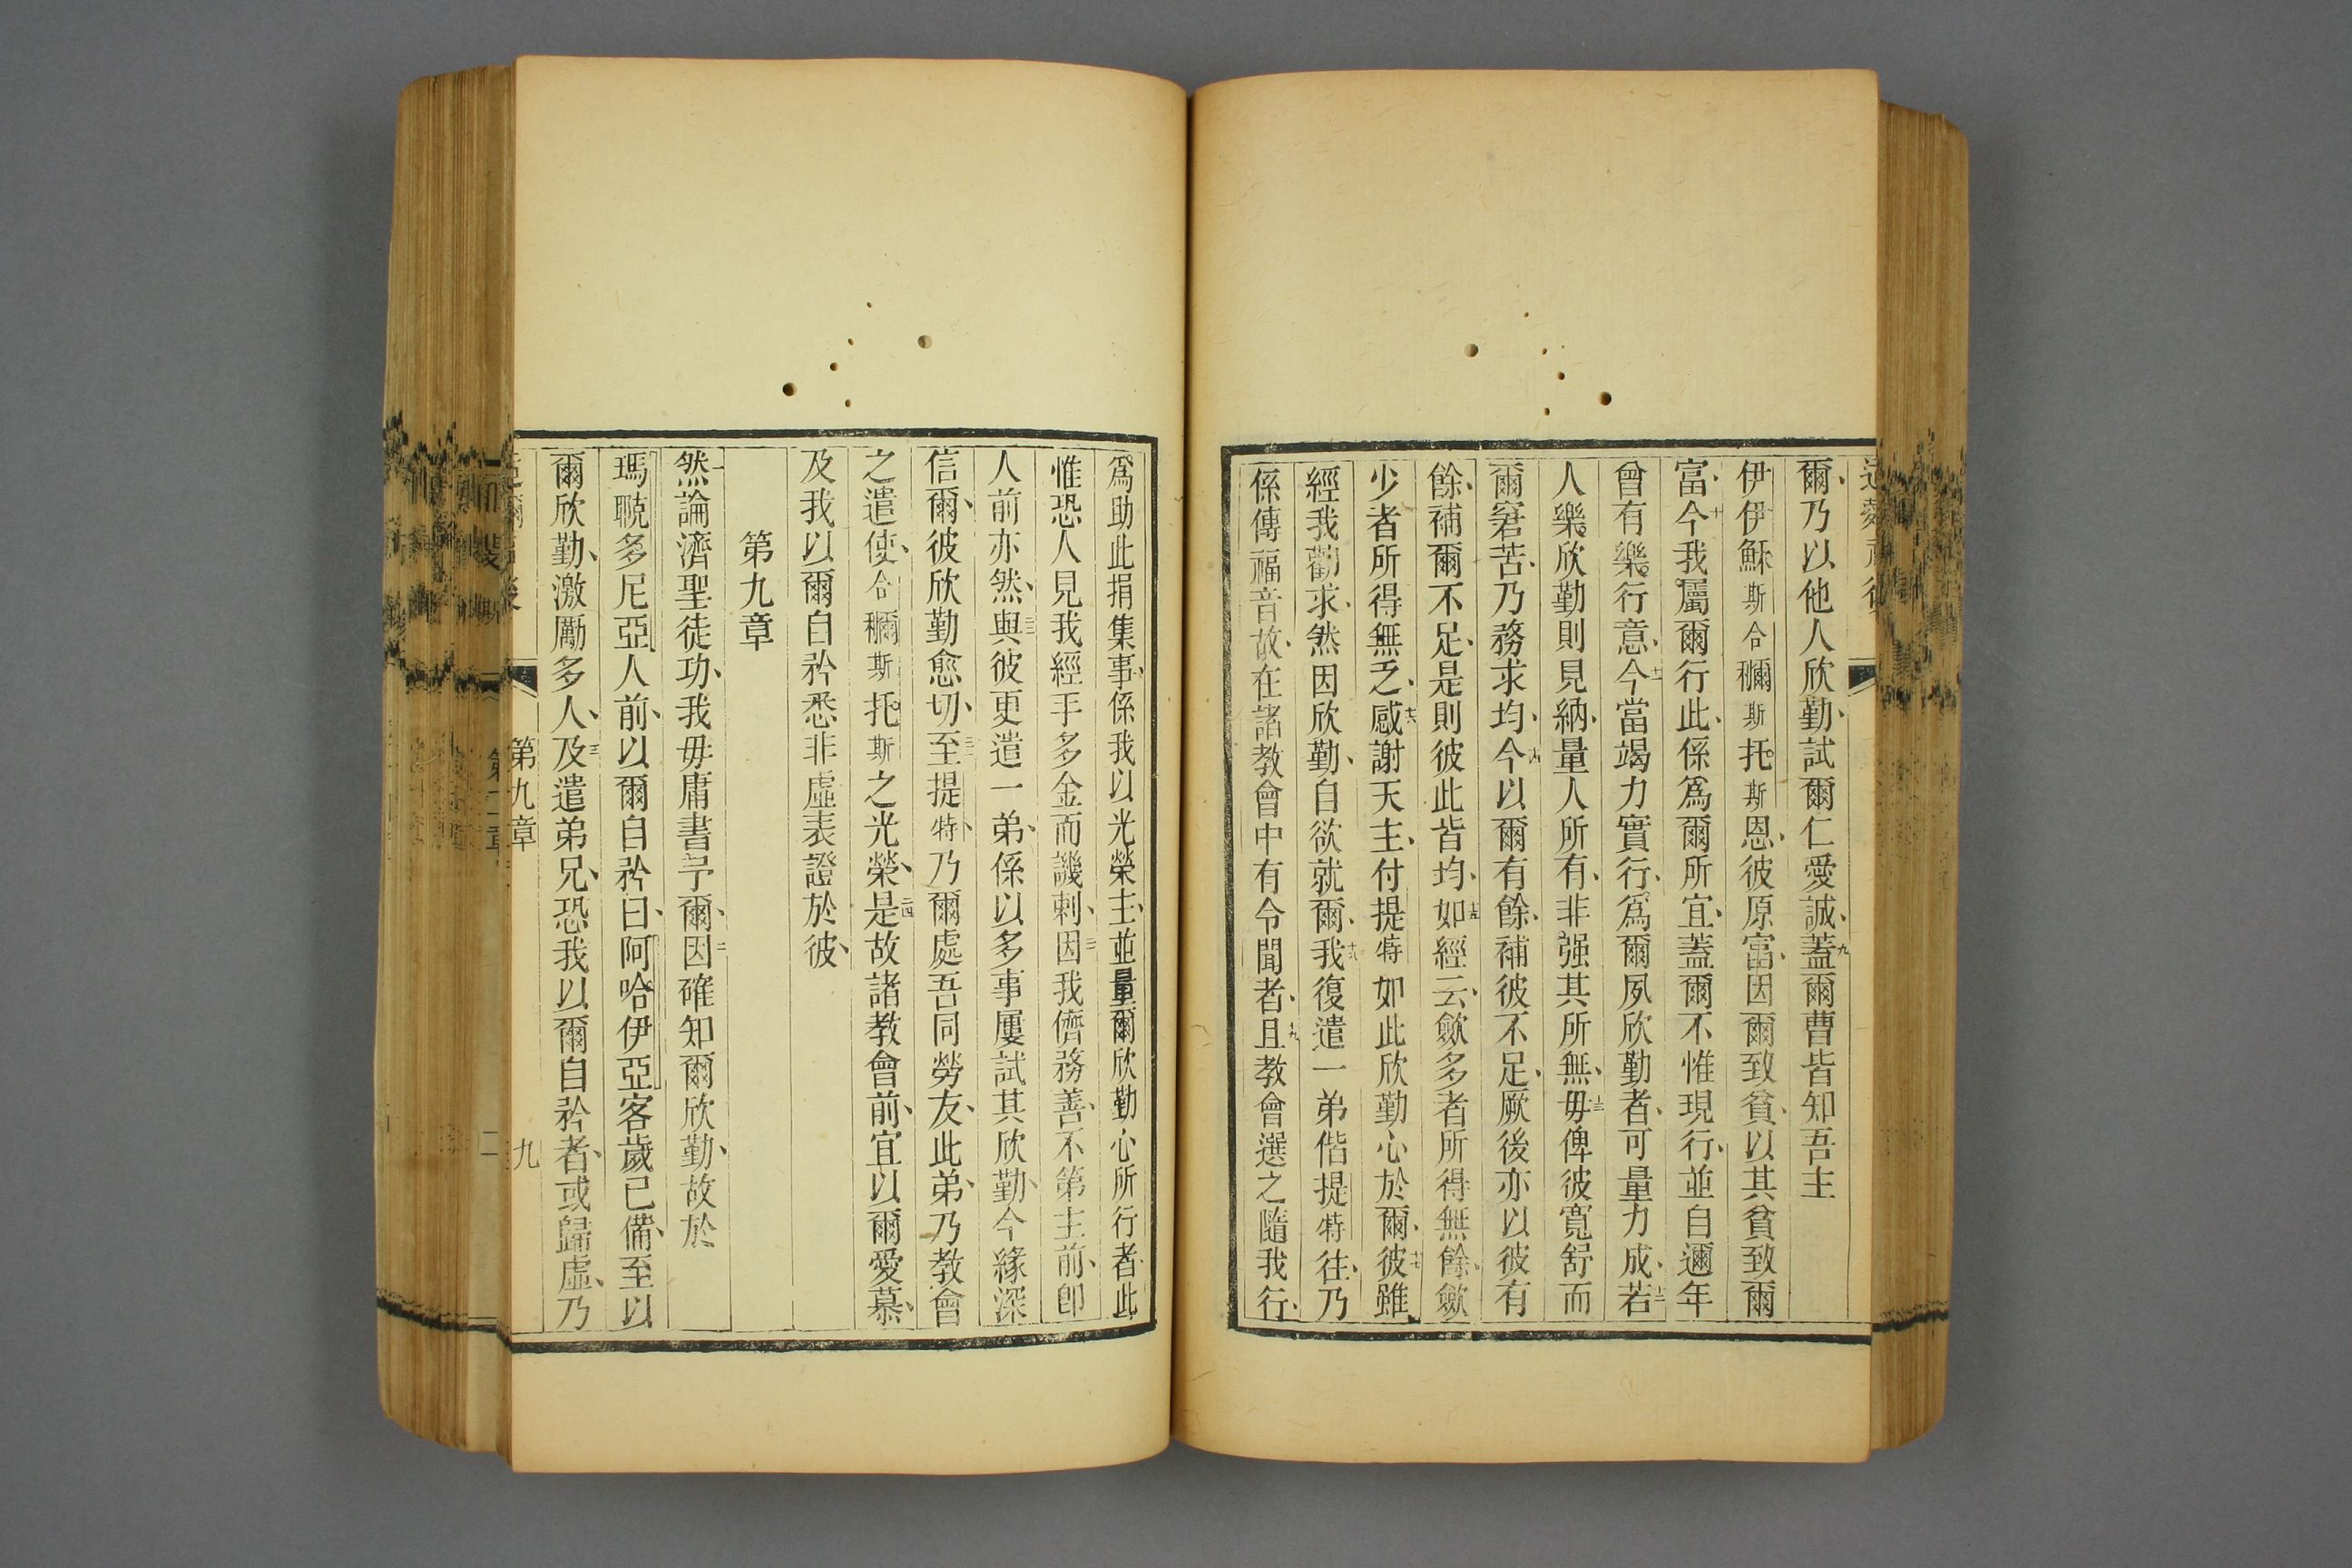 爾、乃以他人欣勤、試爾仁愛誠、九蓋爾曹皆知吾主
伊伊穌斯合穪斯托斯恩、彼原富、因爾致貧、以其貧致爾
富、十今我屬爾行此、係爲爾所宜、蓋爾不惟現行、並自邇年
曾有樂行意、十一今當竭力實行、爲爾夙欣勤者、可量力成、十二若
人樂欣勤則見納、量人所有、非强其所無、十三毋俾彼寬舒而
爾窘苦、乃務求均、十四今以爾有餘、補彼不足、厥後亦以彼有
餘、補爾不足、是則彼此皆均、十五如經云、歛多者所得無餘、歛
少者所得無乏、十六感謝天主、付提特如此欣勤心於爾、十七彼雖
經我勸求、然因欣勤、自欲就爾、十八我復遣一弟偕提特往、乃
係傳福音故、在諸教會中有令聞者、十九且教會選之隨我行、
爲助此捐集事、係我以光榮主、並量爾欣勤心所行者、此
惟恐人見我經手多金而譏刺、二一因我儕務善、不第主前、卽
人前亦然、二二與彼更遣一弟、係以多事屢試其欣勤、今緣深
信爾、彼欣勤愈切、二三至提特、乃爾處吾同勞友、此弟、乃教會
之遣使、合穪斯托斯之光榮、二四是故諸教會前、宜以爾愛慕、
及我以爾自矜悉非虛、表證於彼、
第九章
一然論濟聖徒功、我毋庸書予爾、二因確知爾欣勤、故於
瑪聭多尼亞人前、以爾自矜曰、阿哈伊亞客歲已備、至以
爾欣勤、激勵多人、三及遣弟兄、恐我以爾自矜者、或歸虛、乃
第九章
九